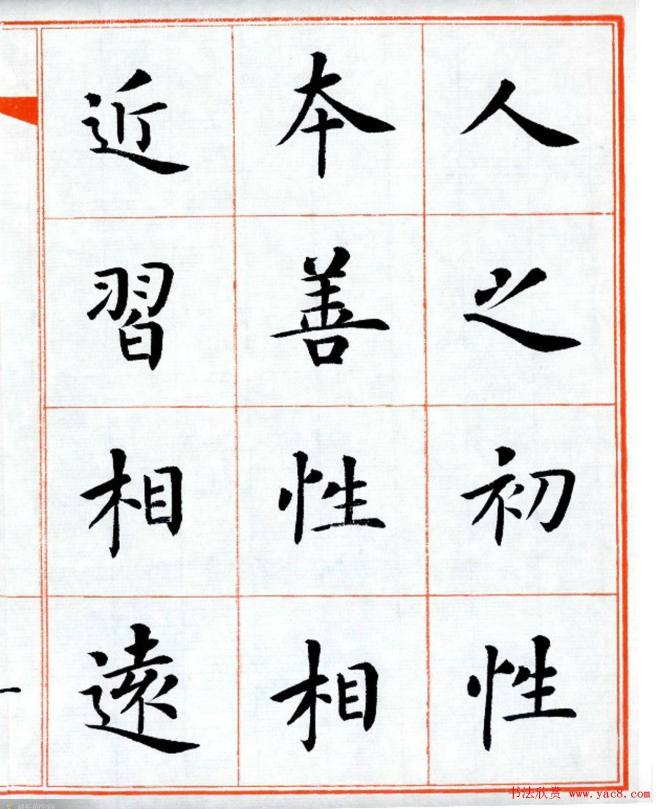 人之初性
本善性相
近習相遠
书法欣赏 www.yac8.com